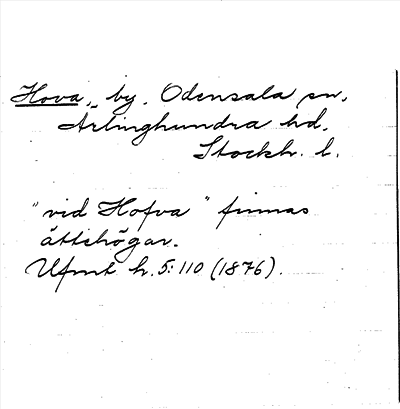 Hova, by, Odensala sn,
Ärlinghundra hd.
Stockh. l.
"vid Hofva" finnas
ättehögar.
Ufmt h. 5: 110 (1876).